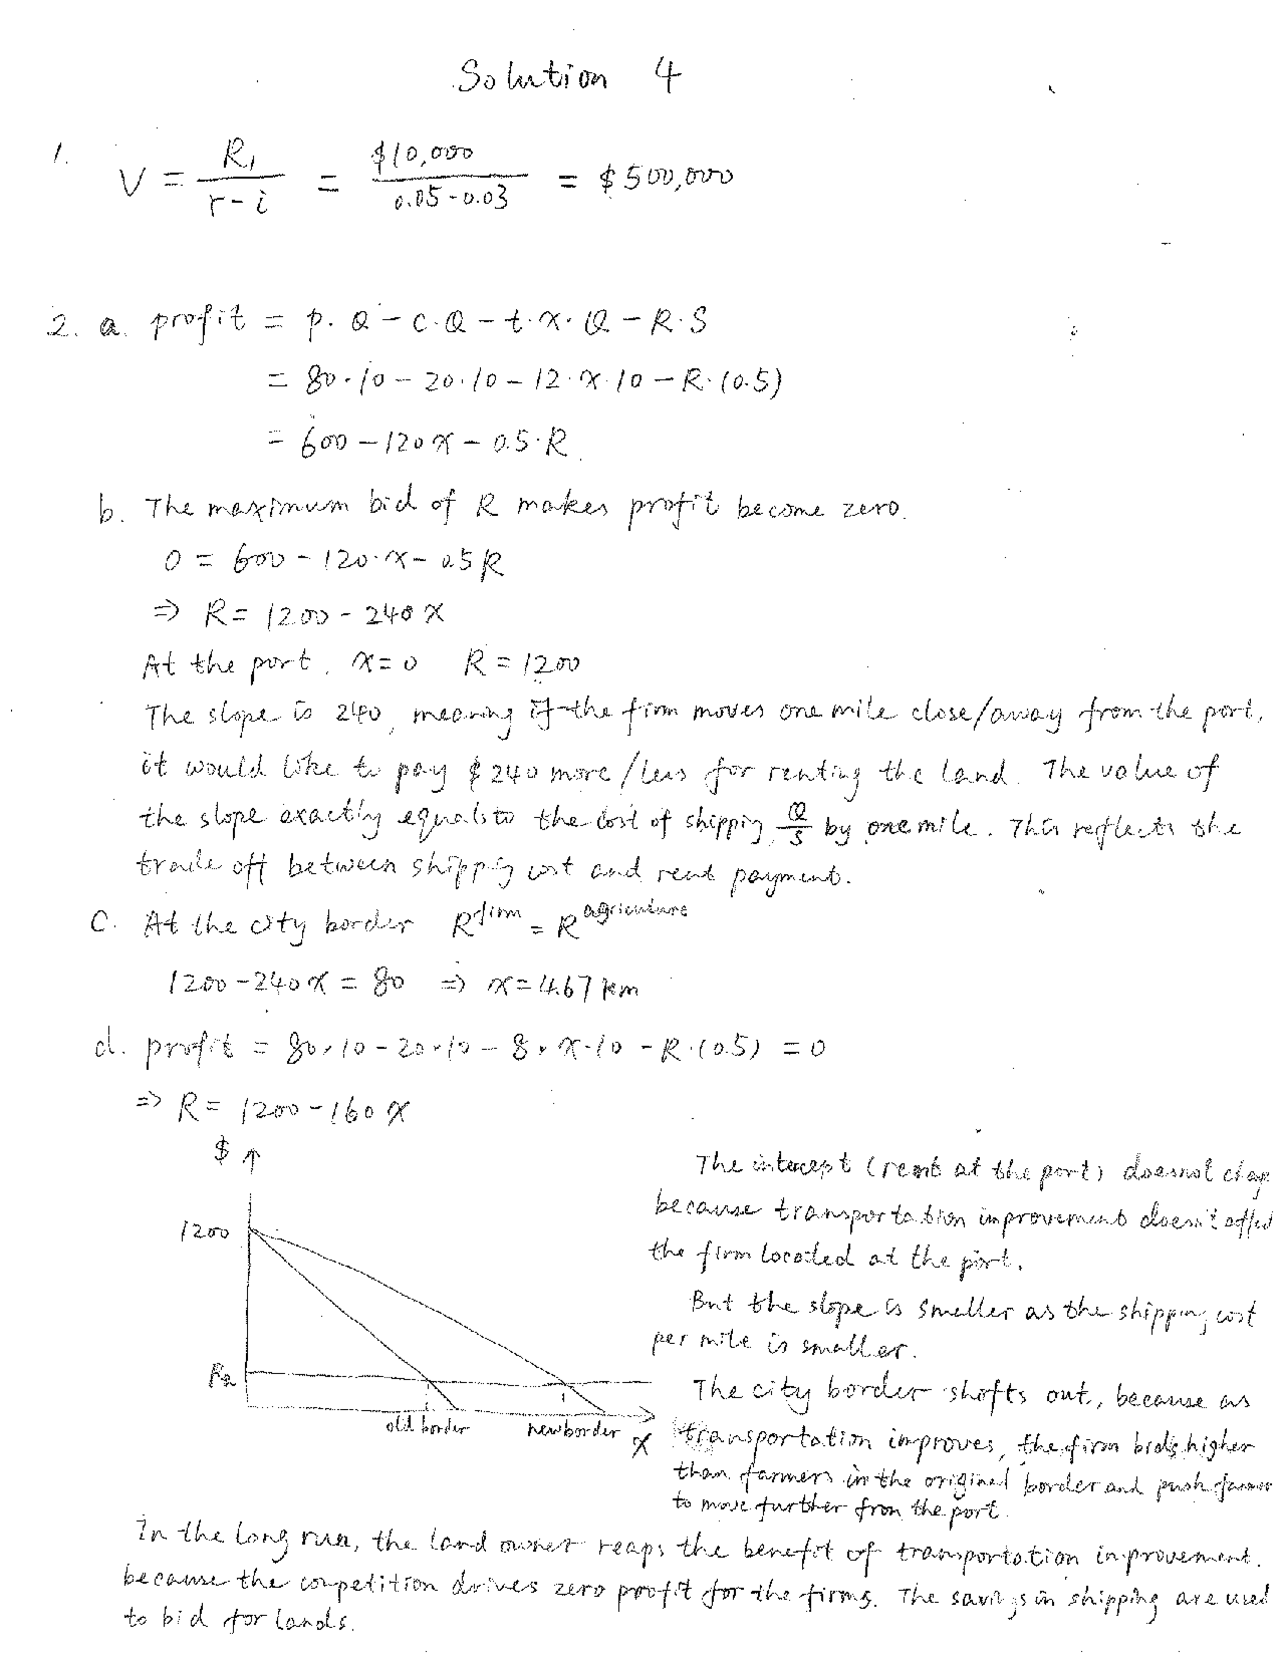 Solution 4
1. V = R₁/(r-i) = $10,000/(0.05-0.03) = $500,000
2. a. profit = p·Q - c·Q - t·x·Q - R·S
= 80·10 - 20·10 - 12·x·10 - R·(0.5)
= 600 - 120x - 0.5·R
b. The maximum bid of R makes profit become zero.
0 = 600 - 120·x - 0.5R
⇒ R = 1200 - 240x
At the port, x=0 R=1200
The slope is 240, meaning if the firm moves one mile close/away from the port,
it would like to pay $240 more/less for renting the land. The value of
the slope exactly equals to the cost of shipping Q/S by one mile. This reflects the
trade off between shipping cost and rent payment.
C. At the city border R^firm = R^agriculture
1200-240x = 80 ⇒ x=4.67 km
d. profit = 80·10 - 20·10 - 8·x·10 - R·(0.5) = 0
⇒ R = 1200-160x
$
1200
Ra
old border
new border
x
The intercept (rent at the port) doesnot
because transportation improvement doesn't
the firm located at the port.
But the slope is smaller as the shipping cost
per mile is smaller.
The city border shifts out, because as
transportation improves, the firm bids higher
than farmers in the original border and push
to move further from the port.
In the long run, the land owner reaps the benefit of transportation improvement.
because the competition drives zero profit for the firms. The savings in shipping are used
to bid for lands.